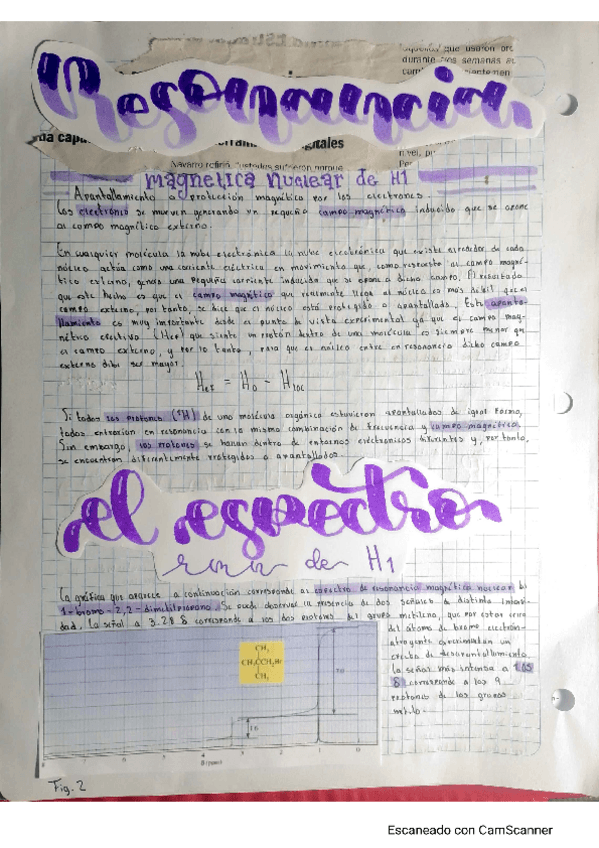 Resonancia
magnetica nuclear de H1
Apantallamiento o protección magnética por los electrones.
Los electrones se mueven generando un pequeño campo magnético inducido que se opone
al campo magnético externo.
En cualquier molécula la nube electrónica la nube electrónica que existe alrededor de cada
núcleo actúa como una corriente eléctrica en movimiento que, como respuesta al campo magné-
tico externo, genera una pequeña corriente inducida que se opone a dicho campo. El resultado
que este hecho es que el campo magnético que realmente llega al núcleo es más débil que el
campo externo, por tanto, se dice que el núcleo está protegido o apantallado. Este apanta-
llamiento es muy importante desde el punto de vista experimental ya que el campo mag-
nético efectivo (Hef) que siente un protón dentro de una molécula es siempre menor que
el campo externo, y por lo tanto, para que el núcleo entre en resonancia dicho campo
externo debe ser mayor.
Hef = H0 - Hloc
Si todos los protones (¹H) de una molécula orgánica estuvieran apantallados de igual forma,
todos entrarían en resonancia con la misma combinación de frecuencia y campo magnético.
Sin embargo, los protones se hayan dentro de entornos electrónicos diferentes y, por tanto,
se encuentran diferentemente protegidos o apantallados.
el espectro
rmn de H1
La gráfica que aparece a continuación corresponde al espectro de resonancia magnética nuclear
1-bromo-2,2-dimetilpropano. Se puede observar la presencia de dos señales de distinta intensi-
dad. La señal a 3.28 δ corresponde a los dos protones del grupo metileno, que por estar cerca
del átomo de bromo electrón-
atrayente experimentan un
efecto de desapantallamiento.
La señal más intensa a 1.05
δ corresponde a los 9
protones de los grupos
metilo.
CH3
CH3CCH2Br
CH3
Fig. 2
Escaneado con CamScanner